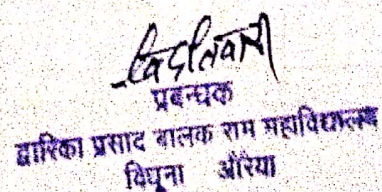 प्रबन्धक
द्वारिका प्रसाद बालक राम महाविद्यालय
विधूना औरैया